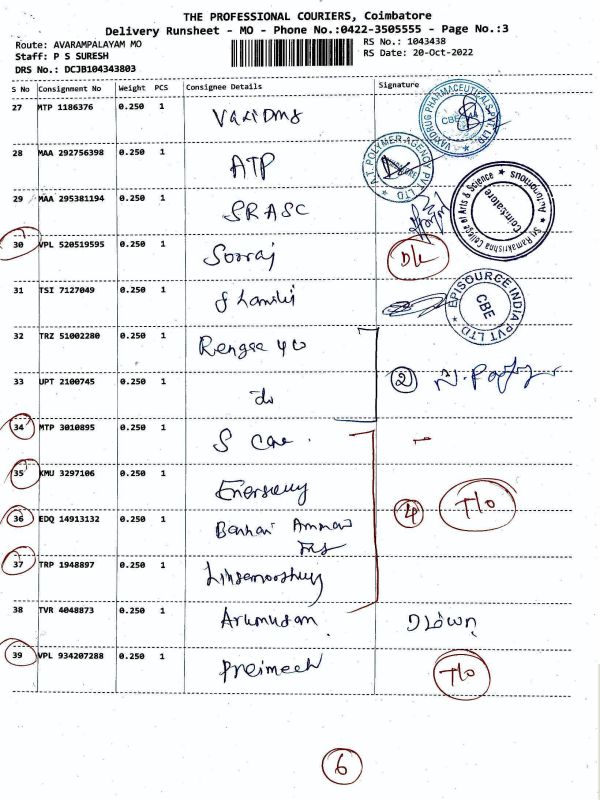 THE PROFESSIONAL COURIERS, Coimbatore
Delivery Runsheet - MO - Phone No.:0422-3505555 - Page No.:3
Route: AVARAMPALAYAM MO
RS No.: 1043438
Staff: P S SURESH
RS Date: 20-Oct-2022
DRS No.: DCJB104343803
S No Consignment No Weight PCS Consignee Details Signature
27 MTP 1186376 0.250 1
VAXIDRUG PHARMACEUTICALS PVT LTD. CBE
28 MAA 292756398 0.250 1 ATP
A.T. POLYMER AGENCY PVT. LTD
29 MAA 295381194 0.250 1 SRASC
Sri Ramakrishna College of Arts & Science Autonomous Coimbatore
30 VPL 520519595 0.250 1 Sooraj D/L
31 TSI 7127049 0.250 1
EPISOURCE INDIA PVT LTD CBE
32 TRZ 51002280 0.250 1
33 UPT 2100745 0.250 1 2
34 MTP 3010895 0.250 1 S Care
35 KMU 3297106 0.250 1
36 EDQ 14913132 0.250 1 4 T/O
37 TRP 1948897 0.250 1
38 TVR 4048873 0.250 1
39 VPL 934207288 0.250 1 T/O
6